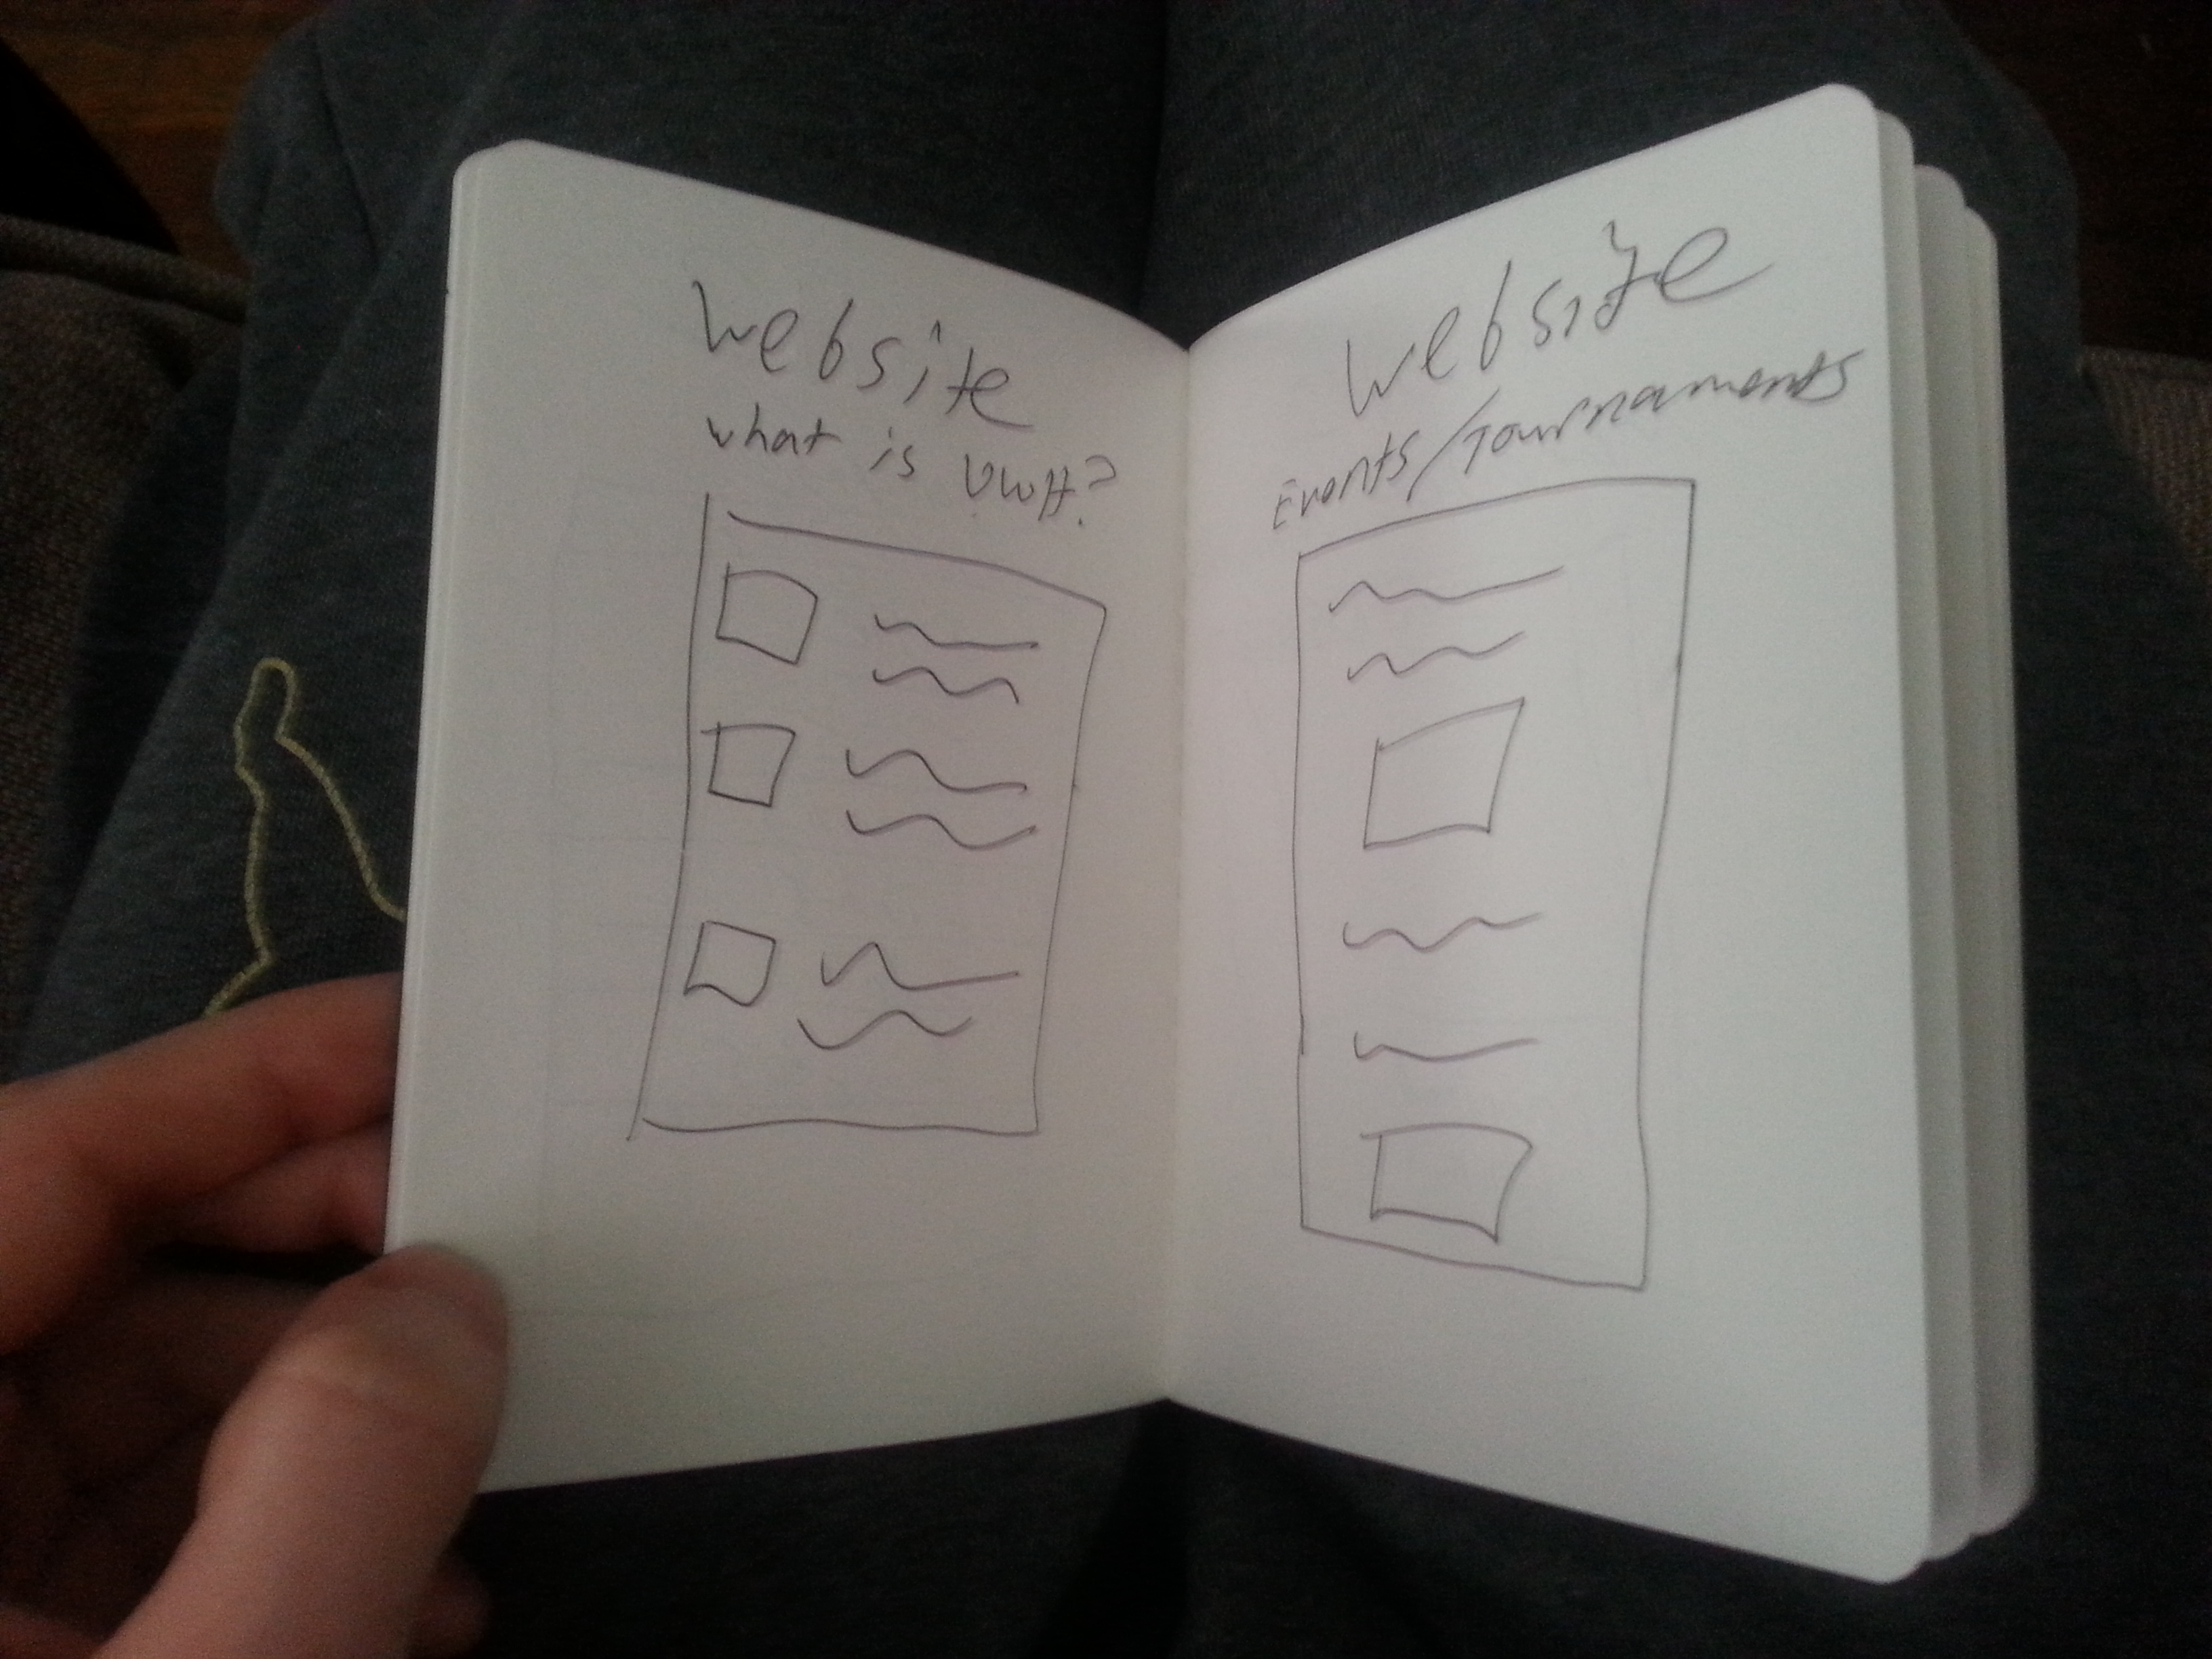 website
what is UWH?
website
Events/Tournaments